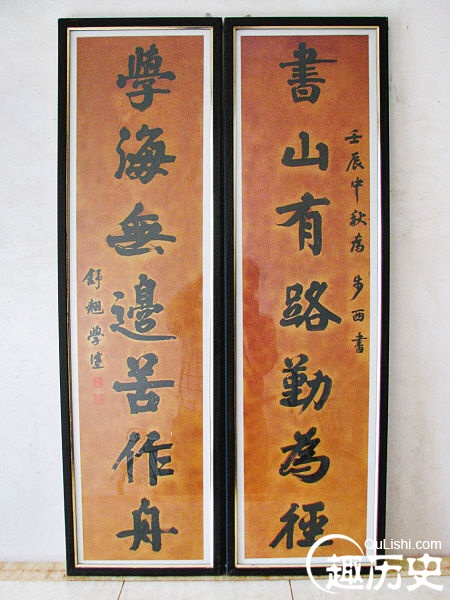 書山有路勤為徑
壬辰中秋為步西書
學海無邊苦作舟
舒翹學生
QuLishi.com
趣历史